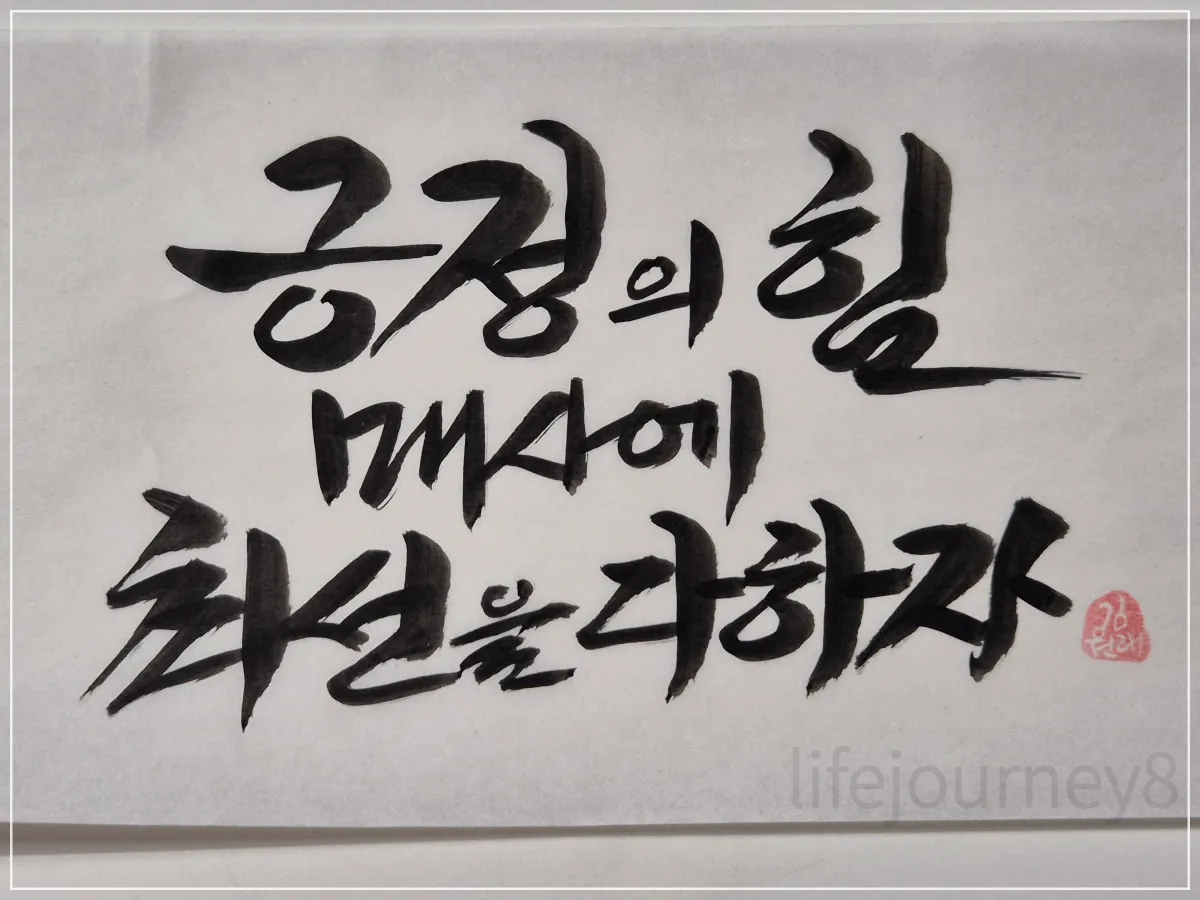 긍정의 힘
매사에
최선을 다하자
lifejourney8